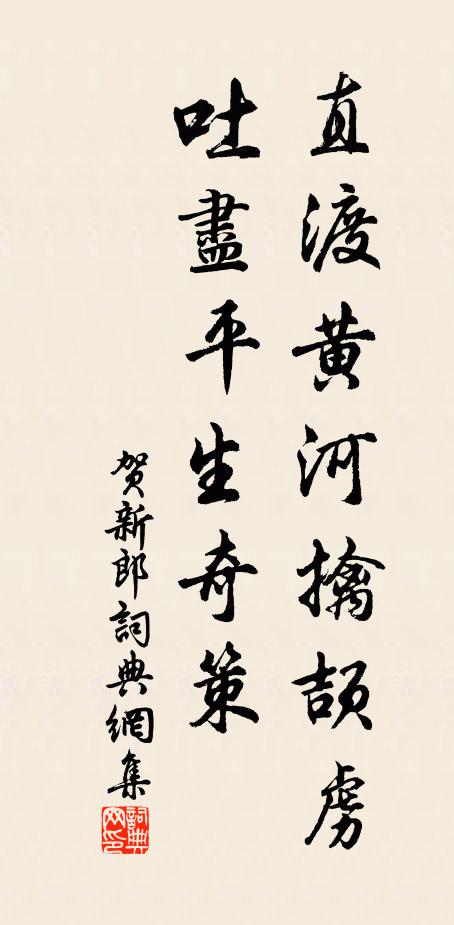 直渡黄河擒颉虏
吐盡平生奇策
贺新郎詞典網集
詞典网印